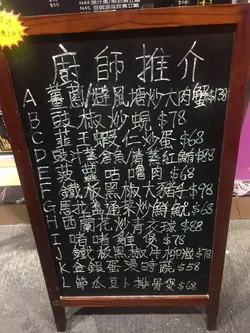 廚師推介
A 薑蔥/避風塘炒大肉蟹$138
B 豉椒炒蜆 $78
C 韭王蝦仁炒蛋 $68
D 豉汁蒸倉魚/清蒸紅鮋$88
E 菠蘿咕嚕肉 $68
F 鐵板黑椒大豬手 $98
G 馬拉盞通菜炒鮮魷$68
H 西蘭花炒青衣球 $88
I 啫啫雞煲 $78
J 鐵板黑椒牛柳粒$78
K 金銀蛋浸時蔬 $58
L 節瓜豆卜排骨煲$68